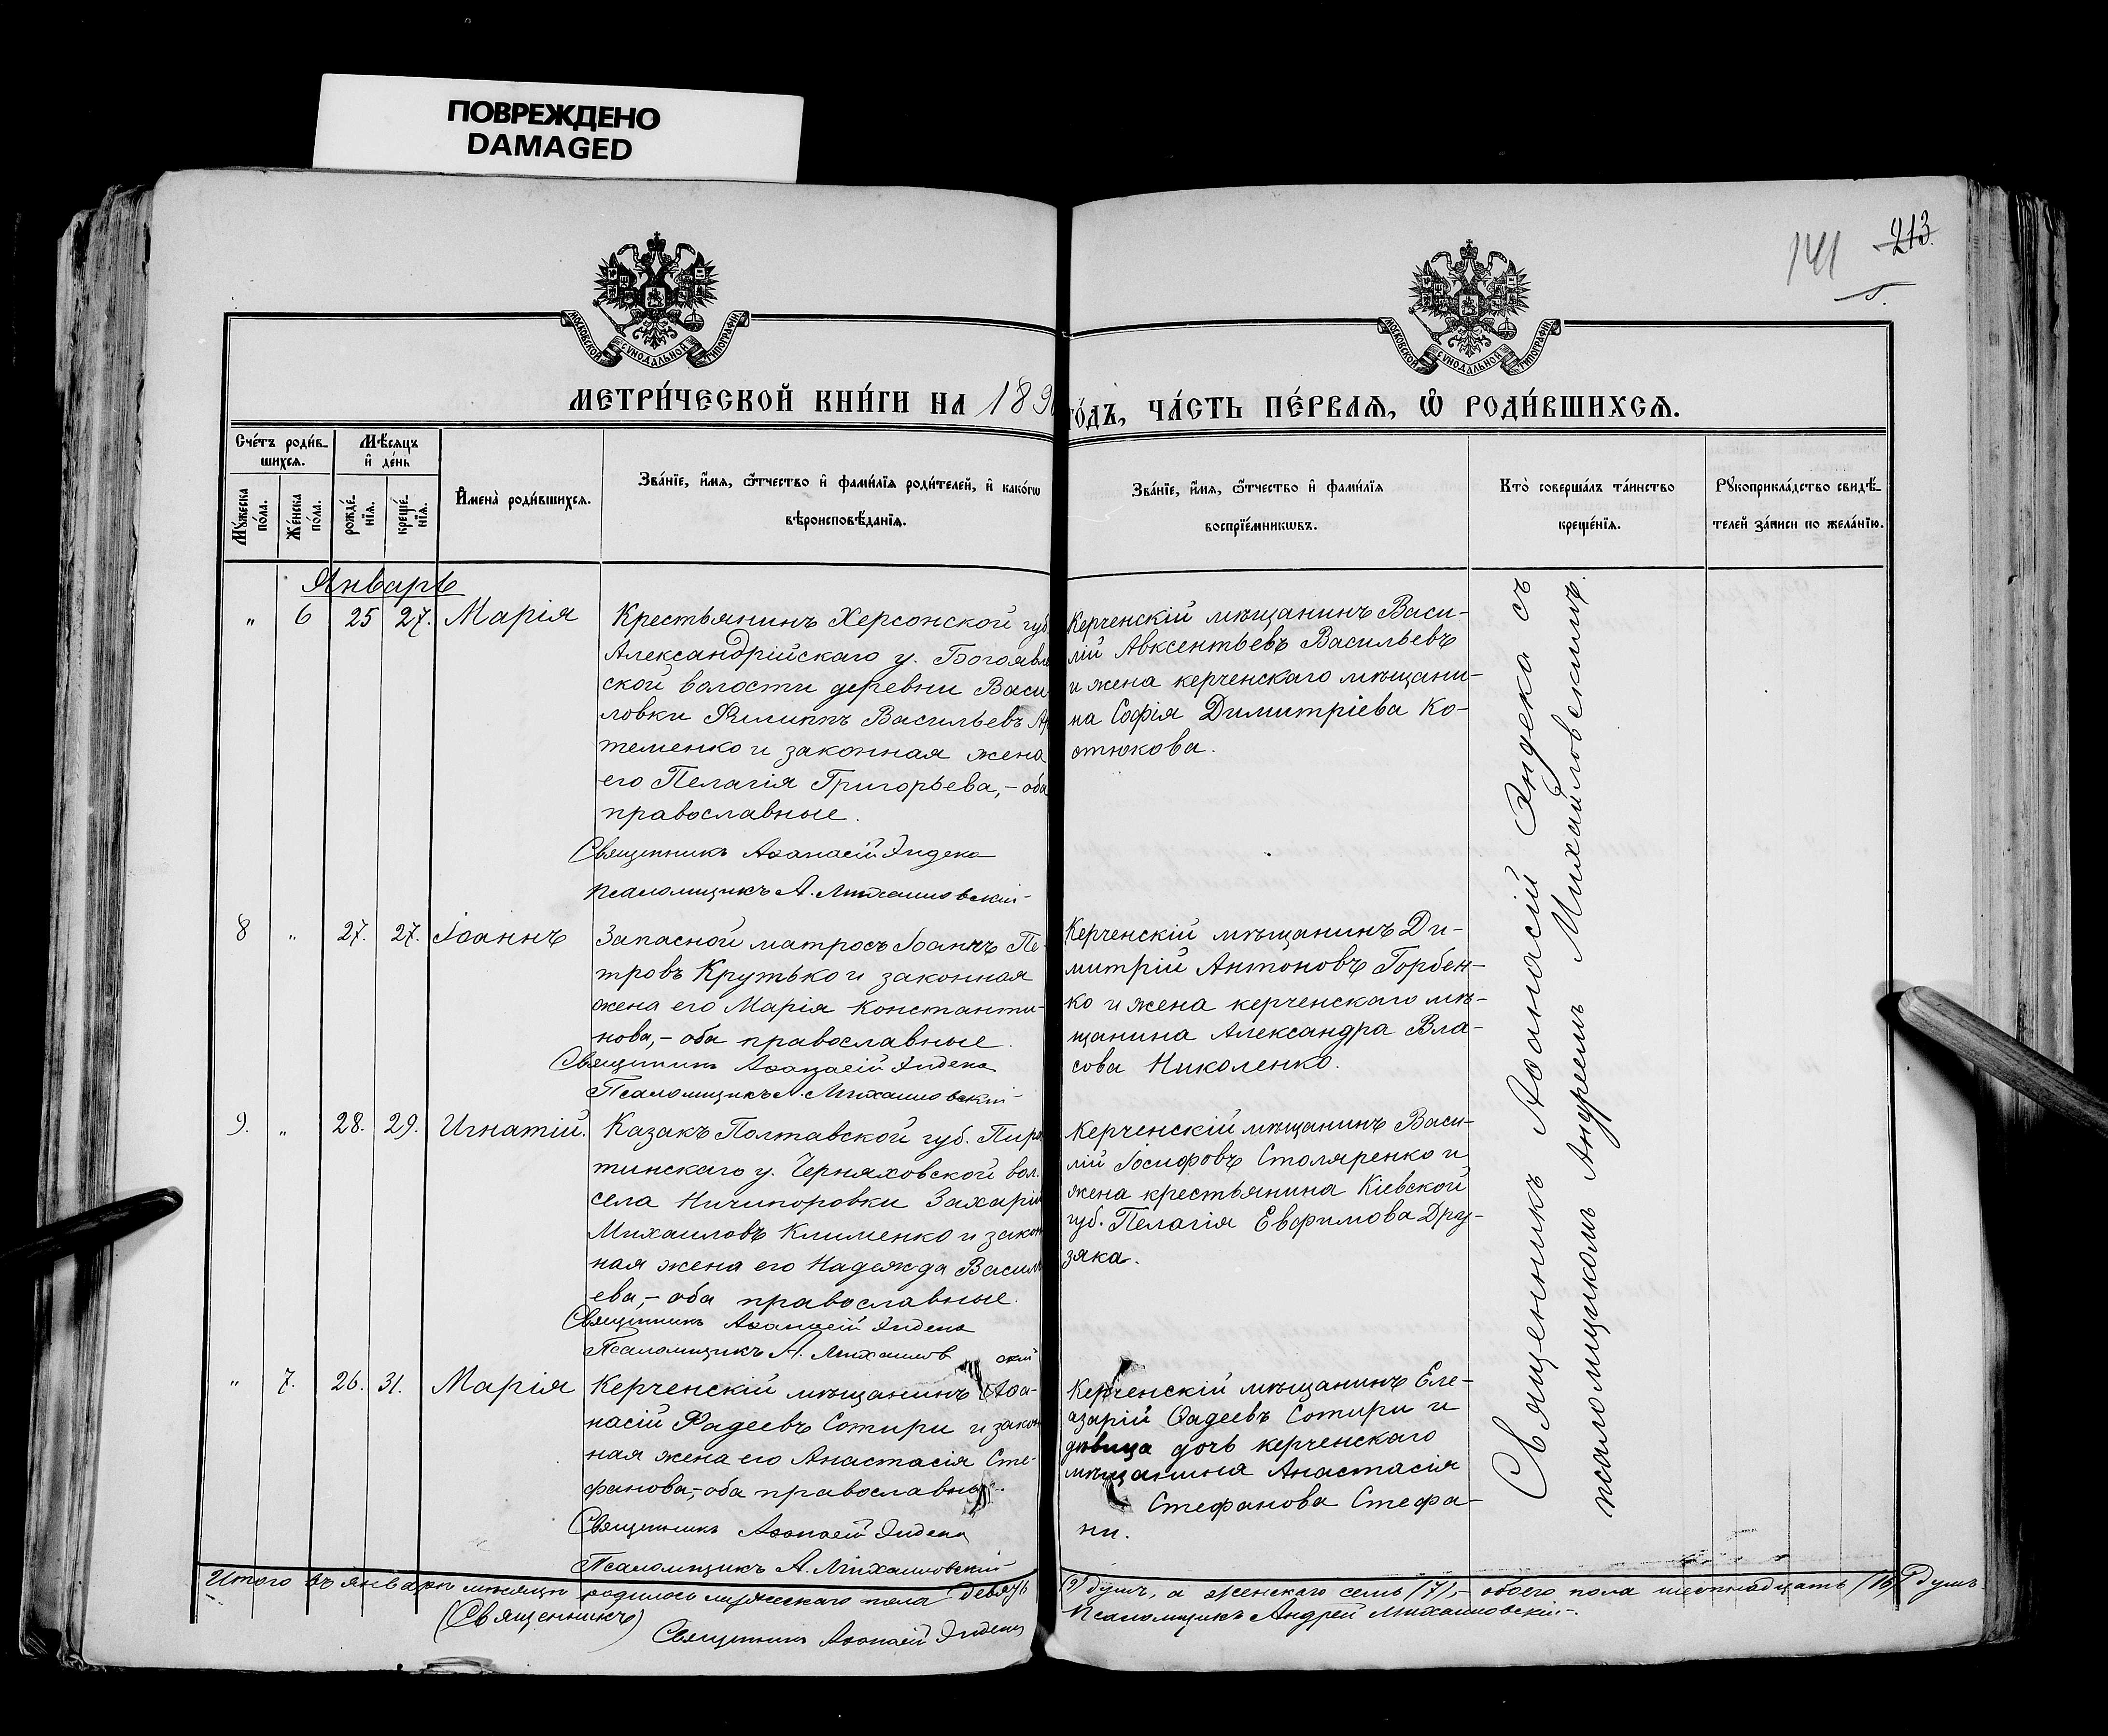 ПОВРЕЖДЕНО
DAMAGED
141 213.
МОСКОВСКОЙ СѴНОДАЛЬНОЙ ТИПОГРАФІИ
МОСКОВСКОЙ СѴНОДАЛЬНОЙ ТИПОГРАФІИ
МЕТРИ́ЧЕСКОЙ КНИ́ГИ НА 189
ГО́ДЪ, ЧА́СТЬ ПЕ́РВАЯ, Ѡ РОДИ́ВШИХСЯ.
Сче́тъ роди́в-
шихся.
Му́жеска по́ла.
Же́нска по́ла.
Мѣ́сяцъ
и де́нь
рожде́нїя.
креще́нїя.
Имена̀ роди́вшихся.
Зва́нїе, и́мя, ѻ́тчество и фами́лїя роди́телей, и како́гѡ
вѣроисповѣ́данїя.
Зва́нїе, и́мя, ѻ́тчество и фами́лїя
воспрїе́мникѡвъ.
Кто̀ соверша́лъ та́инство
креще́нїя.
Рꙋкоприкла́дство свидѣ́-
телей за́писи по жела́нїю.
Январь
" 6 25 27. Марія
Крестьянинъ Херсонской губ.
Александрійскаго у. Богоявле
ской волости деревни Васи
ловки Филиппъ Васильевъ Ар
теменко и законная жена
его Пелагія Григорьева,- оба
православные.
Священникъ Аѳанасій Эндека
Псаломщикъ А. Михайловскій
Керченскій мѣщанинъ Васи-
лій Авксентьевъ Васильевъ
и жена керченскаго мѣщани-
на Софія Димитріева Ко-
стюкова.
8 " 27. 27. Іоаннъ
Запасной матросъ Іоаннъ Пе-
тровъ Крутько и законная
жена его Марія Константи-
нова,- оба православные.
Священникъ Аѳанасій Эндека
Псаломщикъ А. Михайловскій
Керченскій мѣщанинъ Ди-
митрій Антоновъ Горбен-
ко и жена керченскаго мѣ-
щанина Александра Вла-
сова Николенко.
9. " 28. 29. Игнатій.
Казакъ Полтавской губ. Пиря
тинскаго у. Черняховской вол.
села Ничипоровки Захарій
Михаиловъ Клименко и закон
ная жена его Надежда Василь
ева,- оба православные.
Священникъ Аѳанасій Эндека
Псаломщикъ А. Михайловскій
Керченскій мѣщанинъ Васи-
лій Іосифовъ Столяренко и
жена крестьянина Кіевской
губ. Пелагія Евфимова Дру-
зяка.
" 7. 26. 31. Марія
Керченскій мѣщанинъ Аѳа-
насій Фадеевъ Сотири и закон
ная жена его Анастасія Сте-
фанова,- оба православные.
Священникъ Аѳанасій Эндека
Псаломщикъ А. Михайловскій
Керченскій мѣщанинъ Еле-
азарій Ѳадеевъ Сотири и
дѣвица дочь керченскаго
мѣщанина Анастасія
Стефанова Стефа-
ни.
Священникъ Аѳанасій Эндека съ
псаломщикомъ Андреемъ Михайловскимъ.
Итого въ январѣ мѣсяцѣ родилось мужескаго пола девять
(9) душъ, а женскаго семь (7),- обоего пола шестнадцать (16) душъ.
(Священникъ)
Священникъ Аѳанасій Эндека
Псаломщикъ Андрей Михайловскій.